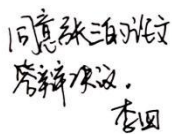 同意张三的论文
答辩决议。
李四